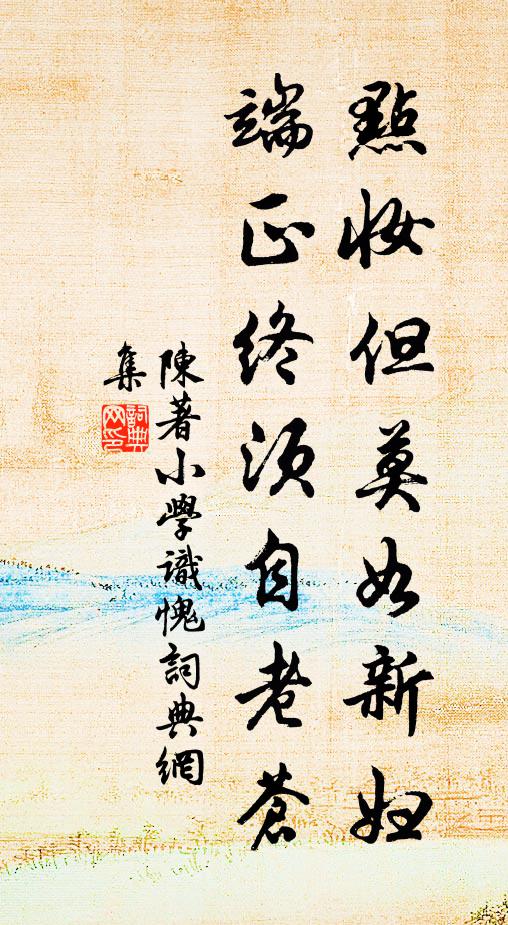 點妝但莫如新婦
端正終須自老蒼
陳著小學識愧詞典網
集
詞典網印